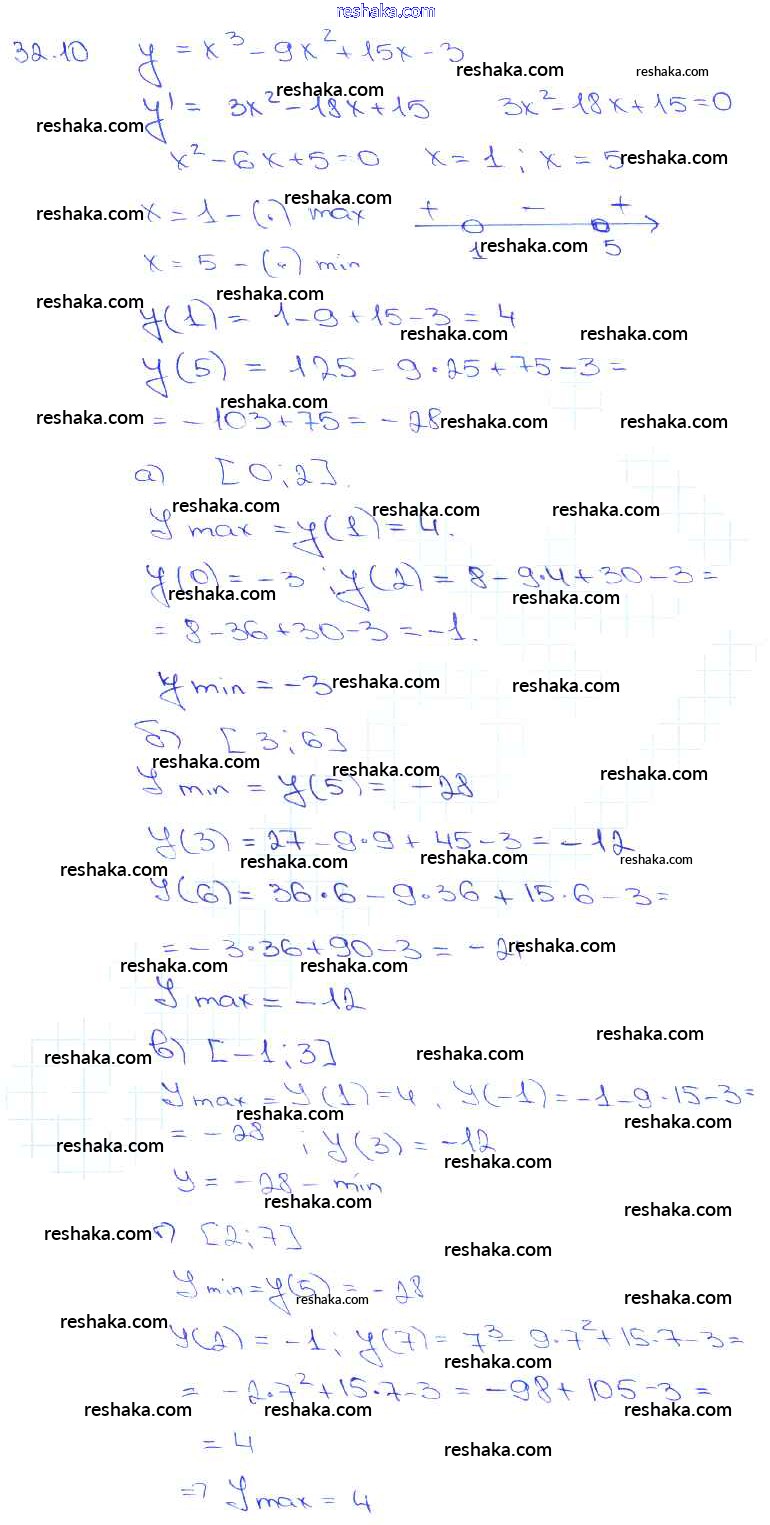 reshaka.com
32.10 y = x³ - 9x² + 15x - 3
reshaka.com reshaka.com
reshaka.com
y' = 3x² - 18x + 15 3x² - 18x + 15 = 0
reshaka.com
x² - 6x + 5 = 0 x = 1 ; x = 5
reshaka.com
reshaka.com
reshaka.com
x = 1 - (.) max + - +
1 5
reshaka.com
x = 5 - (.) min
reshaka.com
reshaka.com
y(1) = 1 - 9 + 15 - 3 = 4
reshaka.com reshaka.com
y(5) = 125 - 9·25 + 75 - 3 =
reshaka.com
reshaka.com
= -103 + 75 = -28
reshaka.com reshaka.com
а) [0; 2].
reshaka.com reshaka.com reshaka.com
y max = y(1) = 4.
y(0) = -3 ; y(2) = 8 - 9·4 + 30 - 3 =
reshaka.com reshaka.com
= 8 - 36 + 30 - 3 = -1.
y min = -3
reshaka.com reshaka.com
б) [3; 6]
reshaka.com reshaka.com reshaka.com
y min = y(5) = -28
y(3) = 27 - 9·9 + 45 - 3 = -12
reshaka.com reshaka.com reshaka.com reshaka.com
y(6) = 36·6 - 9·36 + 15·6 - 3 =
= -3·36 + 90 - 3 = -21
reshaka.com
reshaka.com reshaka.com
y max = -12
reshaka.com
в) [-1; 3]
reshaka.com reshaka.com
y max = y(1) = 4, y(-1) = -1 - 9 - 15 - 3 =
reshaka.com reshaka.com
= -28 ; y(3) = -12
reshaka.com reshaka.com
y = -28 - min
reshaka.com reshaka.com
г) [2; 7]
reshaka.com reshaka.com
y min = y(5) = -28
reshaka.com reshaka.com
reshaka.com
y(2) = -1 ; y(7) = 7³ - 9·7² + 15·7 - 3 =
reshaka.com
= -2·7² + 15·7 - 3 = -98 + 105 - 3 =
reshaka.com reshaka.com reshaka.com
= 4
reshaka.com
=> y max = 4